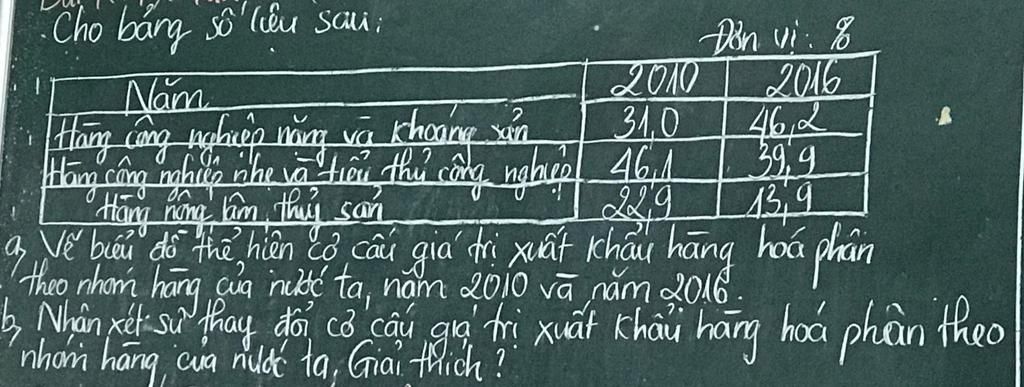 Cho bảng số liệu sau:
Đơn vị: %
Năm 2010 2016
Hàng công nghiệp nặng và khoáng sản 31,0 46,2
Hàng công nghiệp nhẹ và tiểu thủ công nghiệp 46,1 39,9
Hàng nông lâm, thủy sản 22,9 13,9
a, Vẽ biểu đồ thể hiện cơ cấu giá trị xuất khẩu hàng hoá phân
theo nhóm hàng của nước ta, năm 2010 và năm 2016.
b, Nhận xét sự thay đổi cơ cấu giá trị xuất khẩu hàng hoá phân theo
nhóm hàng của nước ta, Giải thích?